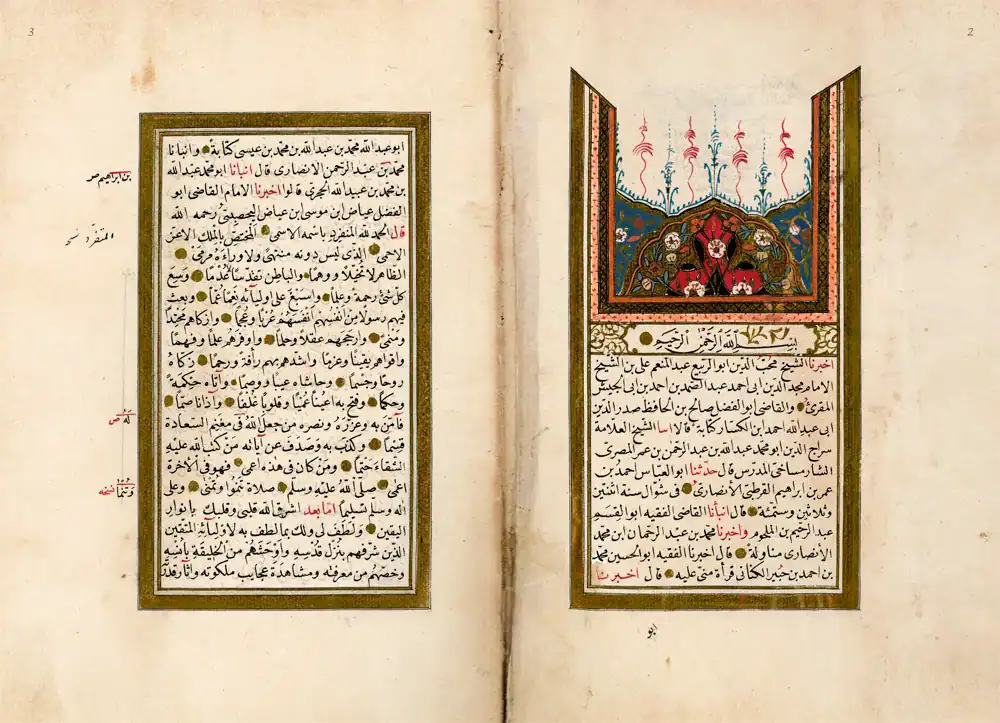 2
بسم الله الرحمن الرحيم
اخبرنا الشيخ محب الدين ابو الربيع عبد المنعم على بن الشيخ
الامام مجد الدين ابى احمد عبد الصمد بن احمد بن ابى الجيش
المقرئ والقاضى ابو الفضل صالح بن الحافظ صدر الدين
ابى عبد الله احمد ابن الكسار كتابة قالا اسا الشيخ العلامة
سراج الدين ابو محمد عبد الله بن عبد الرحمن بن عمر المصرى
الشارمساحى المدرس قال حدثنا ابو العباس احمد بن
عمر بن ابراهيم القرطبى الأنصارى فى شوال سنة اثنتين
وثلاثين وستمئة قال انبأنا القاضى الفقيه ابو القسم
عبد الرحيم بن الملجوم واخبرنا محمد بن عبد الرحمان ابن محمد
الأنصارى مناولة قال اخبرنا الفقيه ابو الحسين محمد
بن احمد بن جبير الكنانى قرأة منى عليه قال اخبرنا
ابو
3
ابو عبد الله محمد بن عبد الله بن محمد بن عيسى كتابة وانبانا
محمد بن عبد الرحمن الانصارى قال انبانا ابو محمد عبد الله
بن ابراهيم صر
بن محمد بن عبيد الله الحجرى قالوا اخبرنا الامام القاضى ابو
الفضل عياض ابن موسى ابن عياض اليحصبى رحمه الله
قال الحمد لله المنفرد باسمه الاسمى المختص بالملك الاعز
المتفرد نسخه
الاحمى الذى ليس دونه منتهى ولا وراءه مرمى
الظاهر لا تخيلا ووهما والباطن تقدسا لا عدما وسع
كل شئ رحمة وعلما واسبغ على اوليائه نعما عما وبعث
فيهم رسولا من انفسهم انفسهم عربا وعجما وازكاهم محتدا
ومنمى وارجحهم عقلا وحلما واوفرهم علما وفهما
واقواهم يقينا وعزما واشدهم بهم رأفة ورحما زكاه
روحا وجسما وحاشاه عيبا ووصما وآتاه حكمة
وحكما وفتح به اعينا عميا وقلوبا غلفا وآذانا صما
فآمن به وعزره ونصره من جعل الله فى مغنم السعادة
له ص
قسما وكذب به وصدف عن آياته من كتب الله عليه
الشقاء حتما ومن كان فى هذه اعمى فهو فى الآخرة
اعمى صلى الله عليه وسلم صلاة تنموا وتنمى وعلى
وتنما نسخه
آله وسلم تسليما اما بعد اشرق الله قلبى وقلبك بانوار
اليقين ولطف لى ولك بما لطف به لاوليائه المتقين
الذين شرفهم بنزل قدسه واوحشهم من الخليقة بانسه
وخصهم من معرفته ومشاهدة عجايب ملكوته وآثار قدر